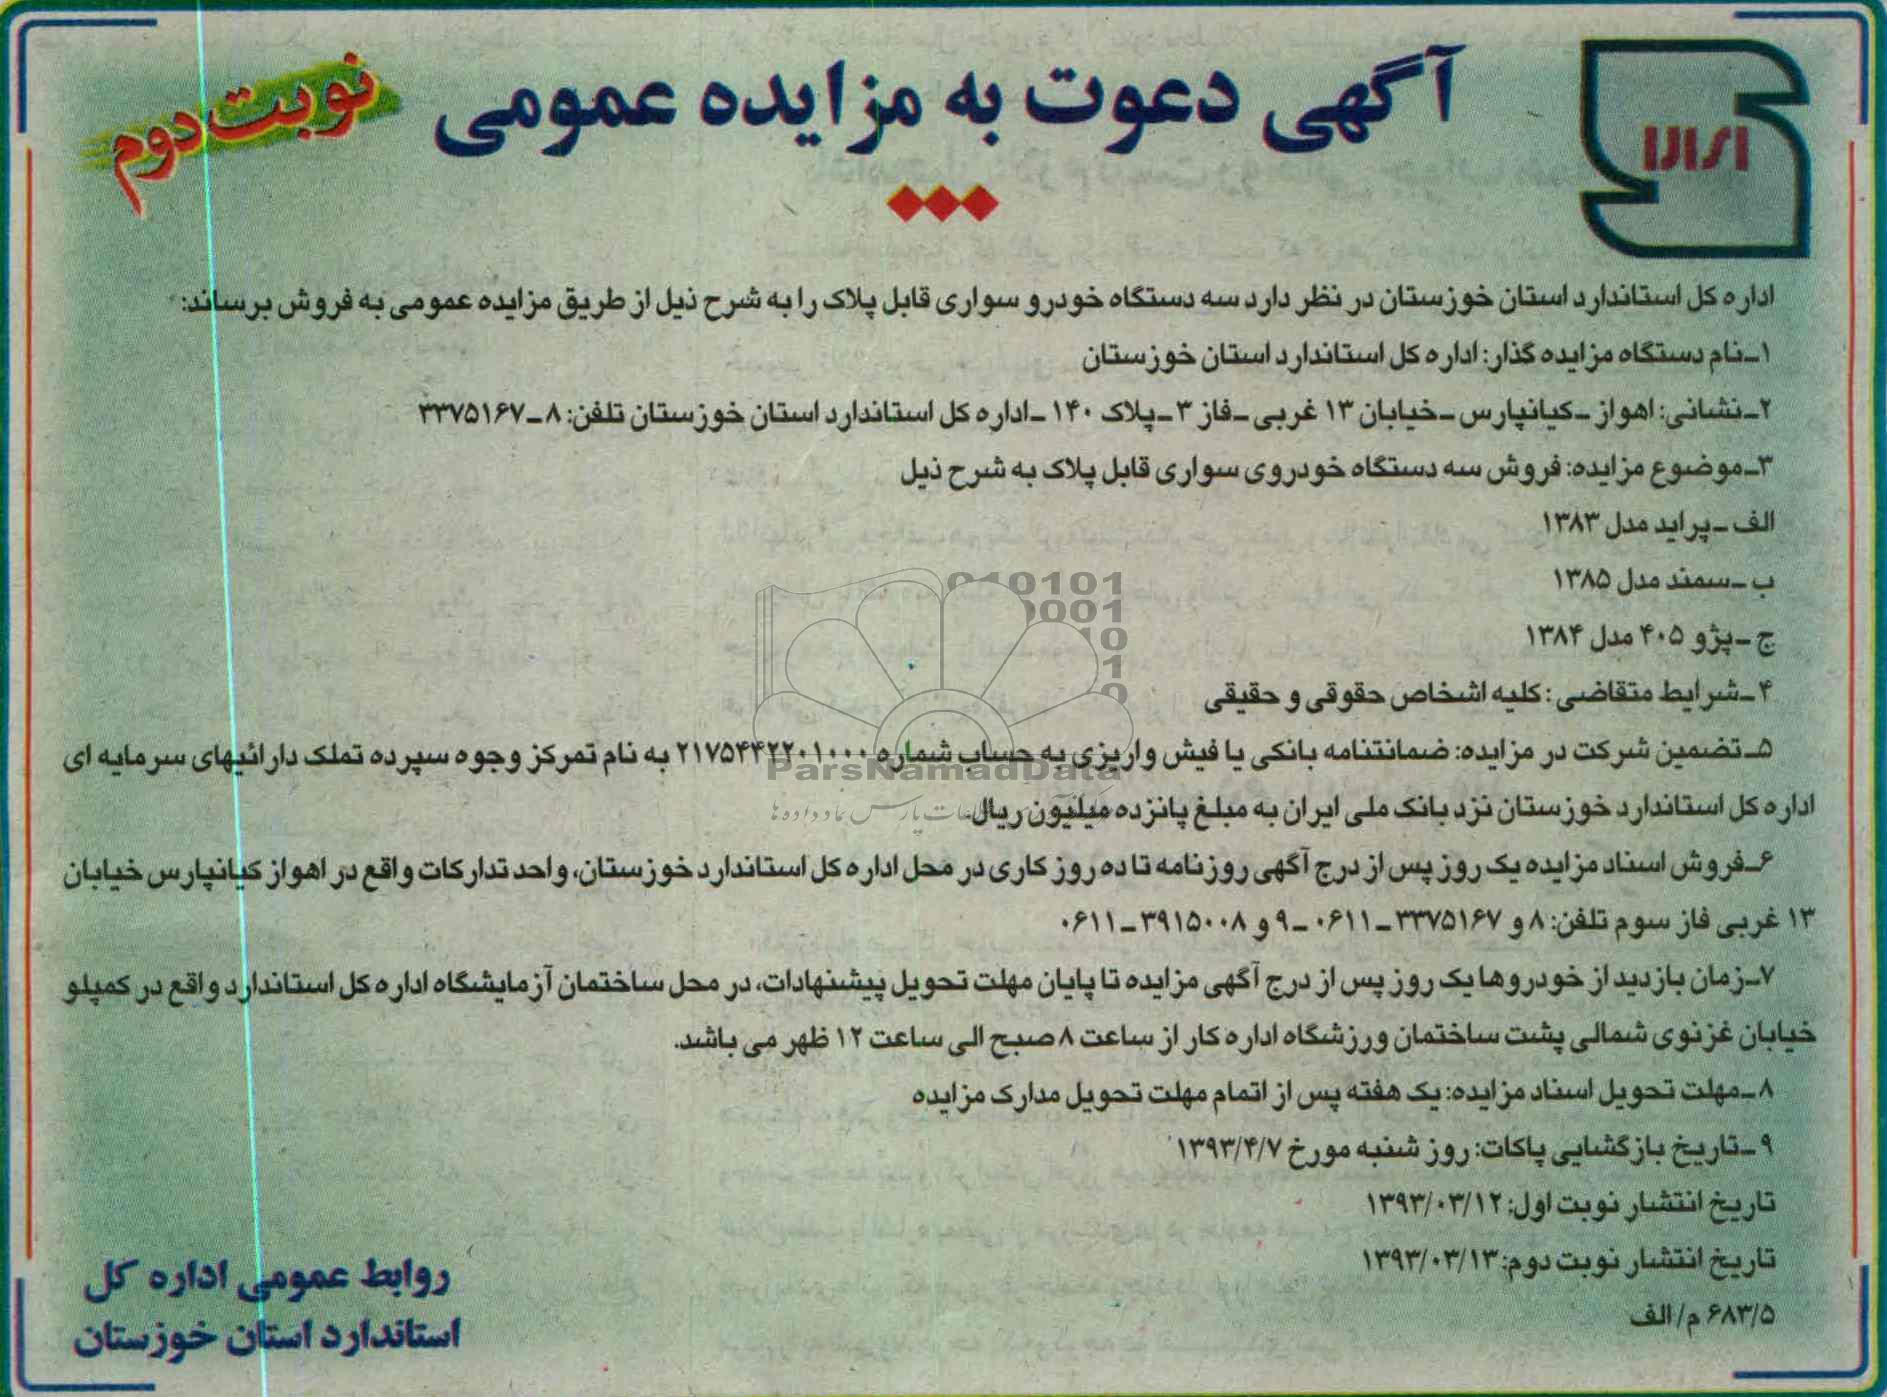 آگهی دعوت به مزایده عمومی
نوبت دوم
ایران
اداره کل استاندارد استان خوزستان در نظر دارد سه دستگاه خودرو سواری قابل پلاک را به شرح ذیل از طریق مزایده عمومی به فروش برساند:
۱ـ نام دستگاه مزایده گذار: اداره کل استاندارد استان خوزستان
۲ـ نشانی: اهواز ـ کیانپارس ـ خیابان ۱۳ غربی ـ فاز ۳ ـ پلاک ۱۴۰ ـ اداره کل استاندارد استان خوزستان تلفن: ۸ـ۳۳۷۵۱۶۷
۳ـ موضوع مزایده: فروش سه دستگاه خودروی سواری قابل پلاک به شرح ذیل
الف ـ پراید مدل ۱۳۸۳
ب ـ سمند مدل ۱۳۸۵
ج ـ پژو ۴۰۵ مدل ۱۳۸۴
۴ـ شرایط متقاضی: کلیه اشخاص حقوقی و حقیقی
۵ـ تضمین شرکت در مزایده: ضمانتنامه بانکی یا فیش واریزی به حساب شماره ۲۱۷۵۴۴۲۲۰۱۰۰۰ به نام تمرکز وجوه سپرده تملک دارائیهای سرمایه ای
اداره کل استاندارد خوزستان نزد بانک ملی ایران به مبلغ پانزده میلیون ریال.
۶ـ فروش اسناد مزایده یک روز پس از درج آگهی روزنامه تا ده روز کاری در محل اداره کل استاندارد خوزستان، واحد تدارکات واقع در اهواز کیانپارس خیابان
۱۳ غربی فاز سوم تلفن: ۸ و ۳۳۷۵۱۶۷ـ۰۶۱۱ ـ ۹ و ۳۹۱۵۰۰۸ـ۰۶۱۱
۷ـ زمان بازدید از خودروها یک روز پس از درج آگهی مزایده تا پایان مهلت تحویل پیشنهادات، در محل ساختمان آزمایشگاه اداره کل استاندارد واقع در کمپلو
خیابان غزنوی شمالی پشت ساختمان ورزشگاه اداره کار از ساعت ۸ صبح الی ساعت ۱۲ ظهر می باشد.
۸ـ مهلت تحویل اسناد مزایده: یک هفته پس از اتمام مهلت تحویل مدارک مزایده
۹ـ تاریخ بازگشایی پاکات: روز شنبه مورخ ۱۳۹۳/۴/۷
تاریخ انتشار نوبت اول: ۱۳۹۳/۰۳/۱۲
تاریخ انتشار نوبت دوم: ۱۳۹۳/۰۳/۱۳
۶۸۳/۵ م/الف
روابط عمومی اداره کل
استاندارد استان خوزستان
ParsNamadData